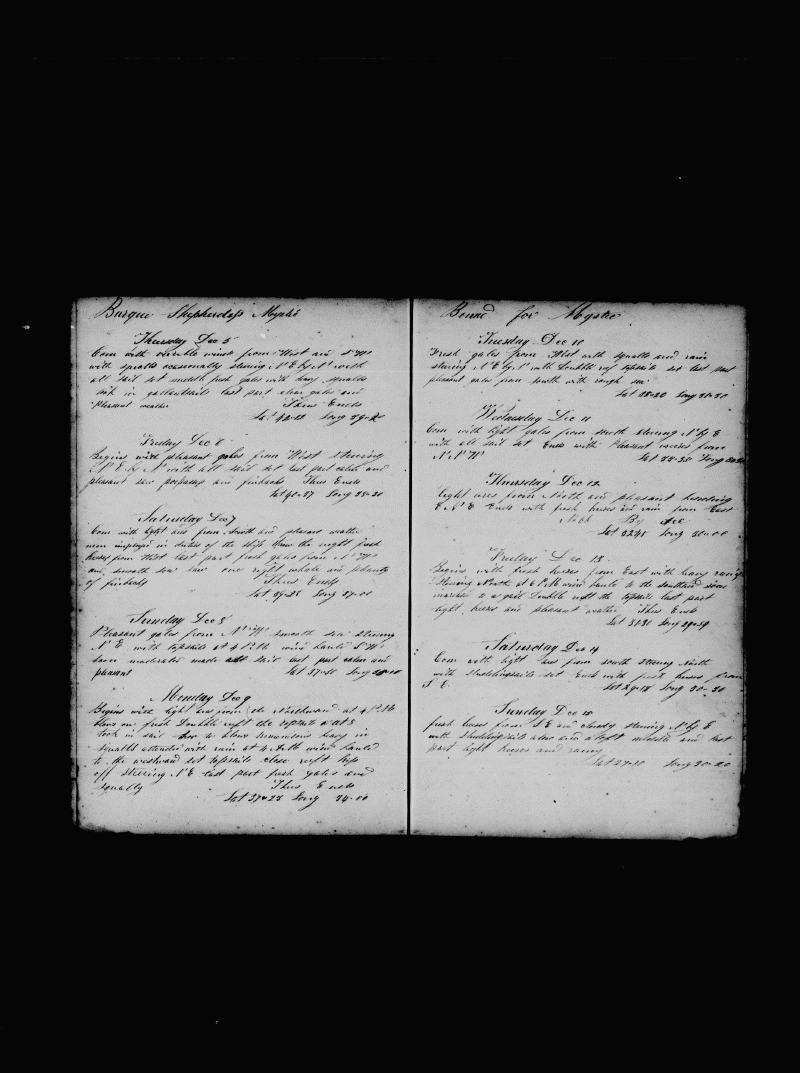 Barque Shepherdess Mystic
Thursday Dec 5
Com with variable winds from West and S W
with squalls occasionally stearing N E by N with
all sail set middle fresh gales with heavy squalls
took in gallantsails last part clear gales and
Pleasant weather Thus Ends
Lat 42-18 Long
Friday Dec 6
Begins with pleasant gales from West stearing
N E by N with all sail set last part calm and
pleasant saw porpoises and finbacks Thus Ends
Lat 40-27 Long 38-30
Saturday Dec 7
Com with light airs from North and pleasant weather
men imployed in duties of the ship Thru the night fresh
breses from West last part fresh gales from N W
and smooth sea saw one right whale and plenty
of finbacks Thus Ends
Lat 39-28 Long 37-00
Sunday Dec 8
Pleasant gales from N W smooth sea stearing
N E with topsails at 4 P.M wind hauld S W
more moderate made all sail last part calm and
pleasant Lat 37-51 Long
Monday Dec 9
Begins with light airs from the Northward at 4 P.M
blows on fresh Double reeft the topsails at 8
took in sail blows tremendous heavy in
squalls attended with rain at 4 A.M wind hauld
to the westward set topsails close reeft tops
off stearing N E last part fresh gales and
squally Thus Ends
Lat 37-23 Long 34-00
Bound for Mystic
Tuesday Dec 10
Fresh gales from West with squalls and rain
stearing N E by N with Double reef topsails set last part
pleasant gales from south with rough sea
Lat 35-20 Long 31-30
Wednesday Dec 11
Com with light gales from south stearing N by E
with all sail set Ends with Pleasant breses from
N N W Lat 33-38 Long
Thursday Dec 12
Light airs from North and pleasant heading
E N E Ends with fresh breses and rain from East
By Acc
Lat 32-41 Long 30-00
Friday Dec 13
Begins with fresh breses from East with heavy rain
stearing North at 6 P.M wind hauld to the southard soon
increasd to a gail Double reeft the topsails last part
light breses and pleasant weather Thus Ends
Lat 31-31 Long 29-59
Saturday Dec 14
Com with light airs from south stearing North
with studdingsails set Ends with fresh breses from
S E Lat 29-18 Long 30-30
Sunday Dec 15
fresh breses from S E and cloudy stearing N by E
with studdingsails alow and aloft middle and last
part light breses and rainy
Lat 27-10 Long 30-20